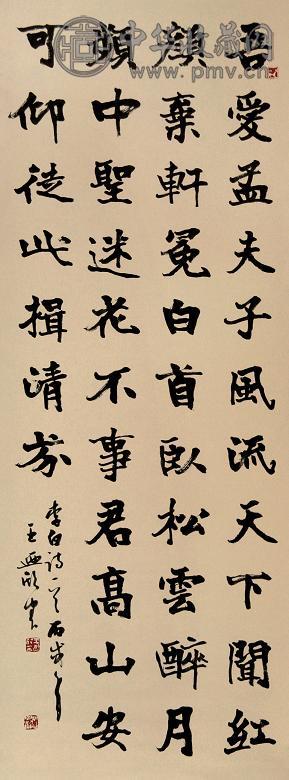 中华收藏网
www.pmv.cn
吾愛孟夫子風流天下聞紅
顏棄軒冕白首臥松雲醉月
頻中聖迷花不事君高山安
可仰徒此揖清芬
李白詩一首
王